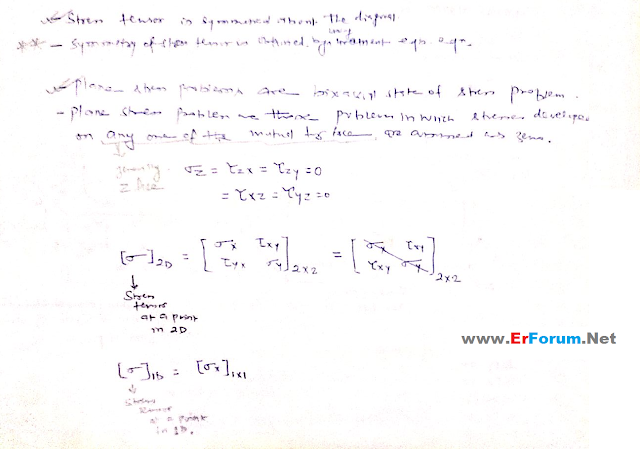 - Stress tensor is symmetrical about the diagonal
** - Symmetry of stress tensor is obtained by using moment eqn. eqn.
- Plane stress problems are biaxial state of stress problem.
- Plane stress problem are those problem in which stresses developed
on any one of the mutual ⊥r face, are assumed as zero.
generally z face
σz = τzx = τzy = 0
= τxz = τyz = 0
[σ]2D = [σx τxy τyx σy]2×2 = [σx τxy τxy σy]2×2
↓
Stress
tensor
at a point
in 2D
www.ErForum.Net
[σ]1D = [σx]1×1
↓
Stress
tensor
at a point
in 1D.